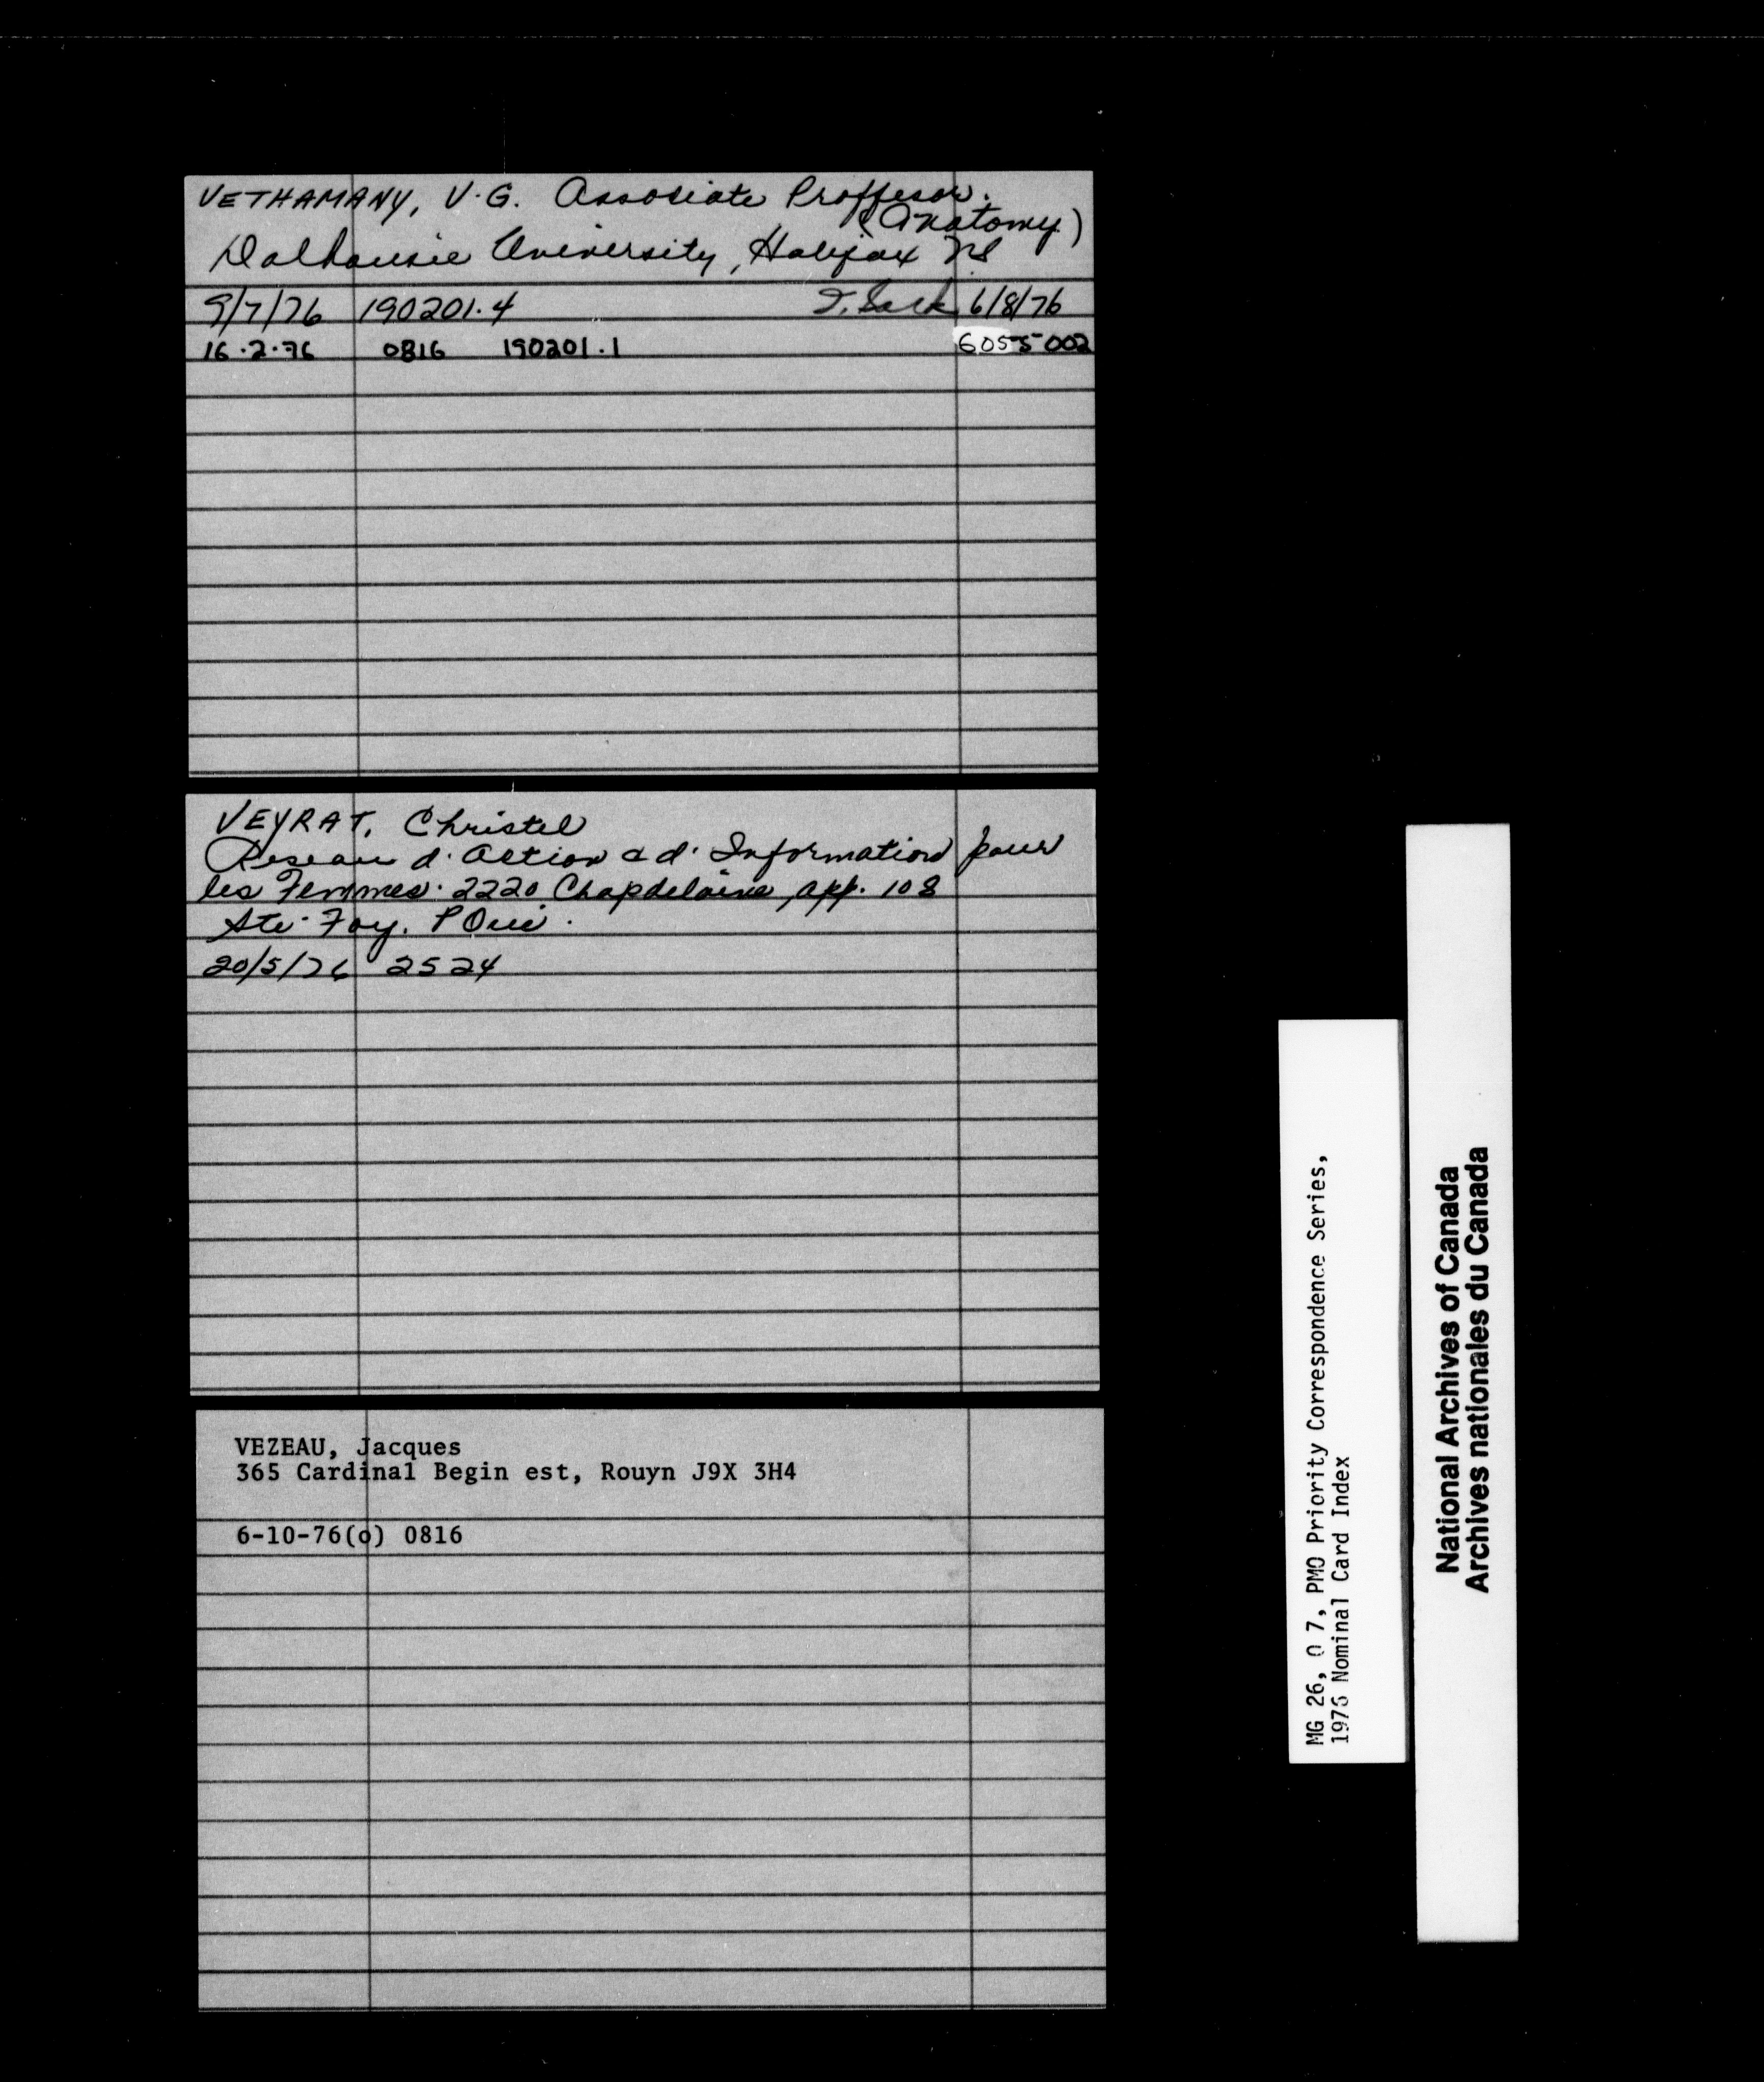 VETHAMANY, V.G. Associate Proffesor.
(Anatomy)
Dalhousie University, Halifax NS
9/7/76 190201.4 6/8/76
16.2.76 0816 190201.1 6055-002
VEYRAT, Christel
Reseau d'Action & d'Information pour
les Femmes. 2220 Chapdelaine, app. 108
Ste-Foy. P Que.
20/5/76 2524
VEZEAU, Jacques
365 Cardinal Begin est, Rouyn J9X 3H4
6-10-76(o) 0816
MG 26, O 7, PMO Priority Correspondence Series,
1976 Nominal Card Index
National Archives of Canada
Archives nationales du Canada